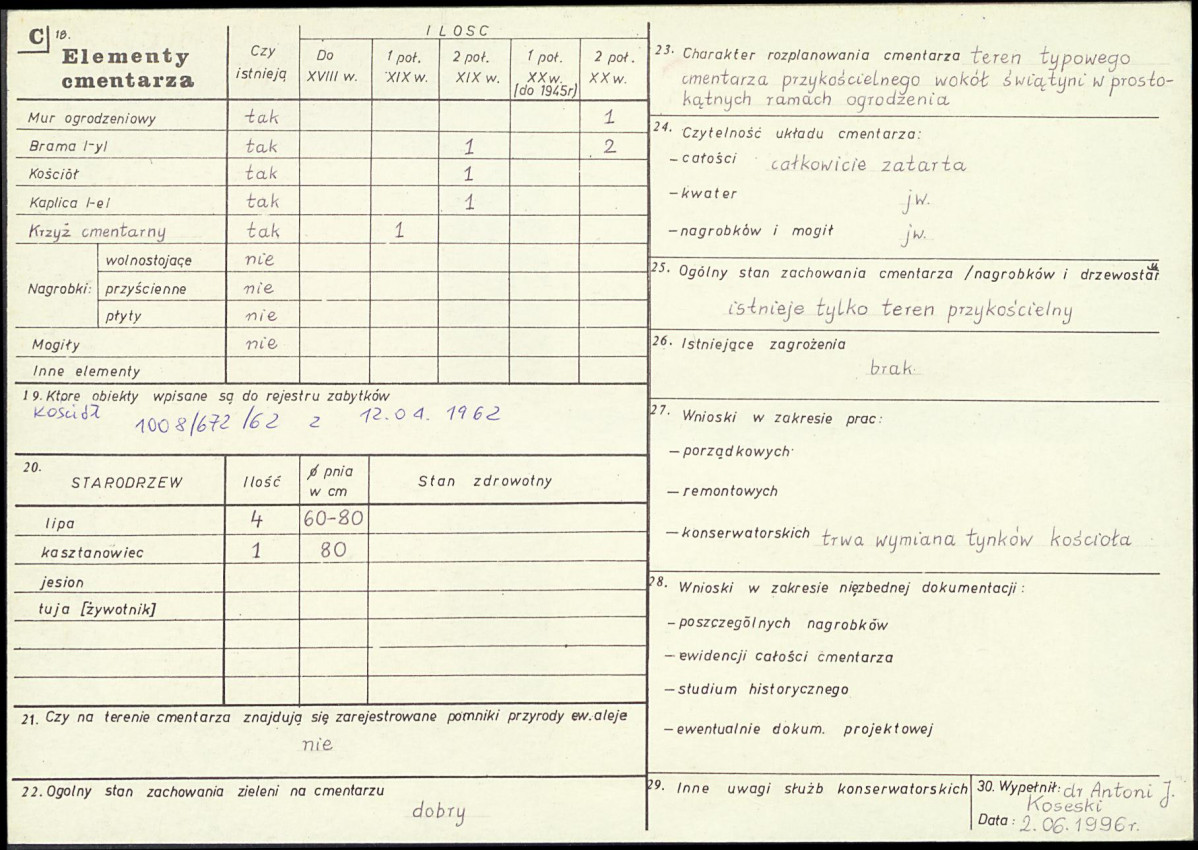 C 18.
Elementy
cmentarza
Czy
istnieją
ILOSC
Do
XVIII w.
1 poł.
XIX w.
2 poł.
XIX w.
1 poł.
XX w.
[do 1945r]
2 poł.
XX w.
Mur ogrodzeniowy tak 1
Brama /-y/ tak 1 2
Kościół tak 1
Kaplica /-e/ tak 1
Krzyż cmentarny tak 1
Nagrobki: wolnostojące nie
przyścienne nie
płyty nie
Mogiły nie
Inne elementy
19. Które obiekty wpisane są do rejestru zabytków
kościół 1008/672/62 z 12.04.1962
20.
STARODRZEW
Ilość
ø pnia
w cm
Stan zdrowotny
lipa 4 60-80
kasztanowiec 1 80
jesion
tuja [żywotnik]
21. Czy na terenie cmentarza znajdują się zarejestrowane pomniki przyrody ew. aleje
nie
22. Ogolny stan zachowania zieleni na cmentarzu
dobry
23. Charakter rozplanowania cmentarza teren typowego
cmentarza przykościelnego wokół świątyni w prosto-
kątnych ramach ogrodzenia
24. Czytelność układu cmentarza:
- całości całkowicie zatarta
- kwater jw.
- nagrobków i mogił jw.
25. Ogólny stan zachowania cmentarza /nagrobków i drzewostanu
istnieje tylko teren przykościelny
26. Istniejące zagrożenia
brak
27. Wnioski w zakresie prac:
- porządkowych
- remontowych
- konserwatorskich trwa wymiana tynków kościoła
28. Wnioski w zakresie niezbednej dokumentacji:
- poszczególnych nagrobków
- ewidencji całości cmentarza
- studium historycznego
- ewentualnie dokum. projektowej
29. Inne uwagi służb konserwatorskich
30. Wypełnił: dr Antoni J.
Koseski
Data: 2.06.1996r.